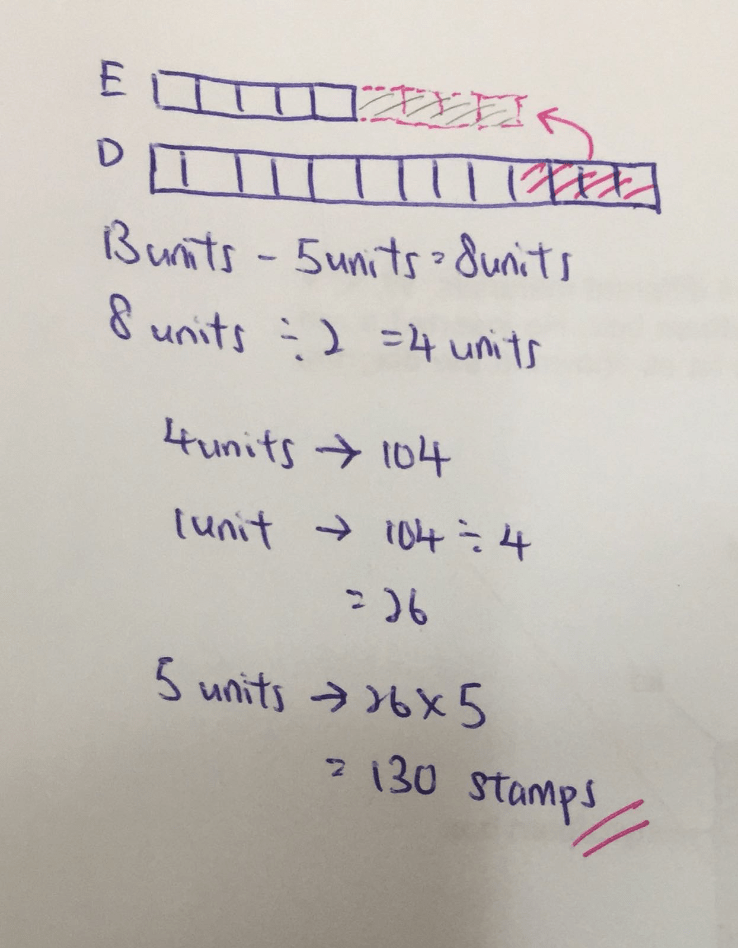 E
D
13 units - 5 units = 8 units
8 units ÷ 2 = 4 units
4 units → 104
1 unit → 104 ÷ 4
= 26
5 units → 26 × 5
= 130 stamps